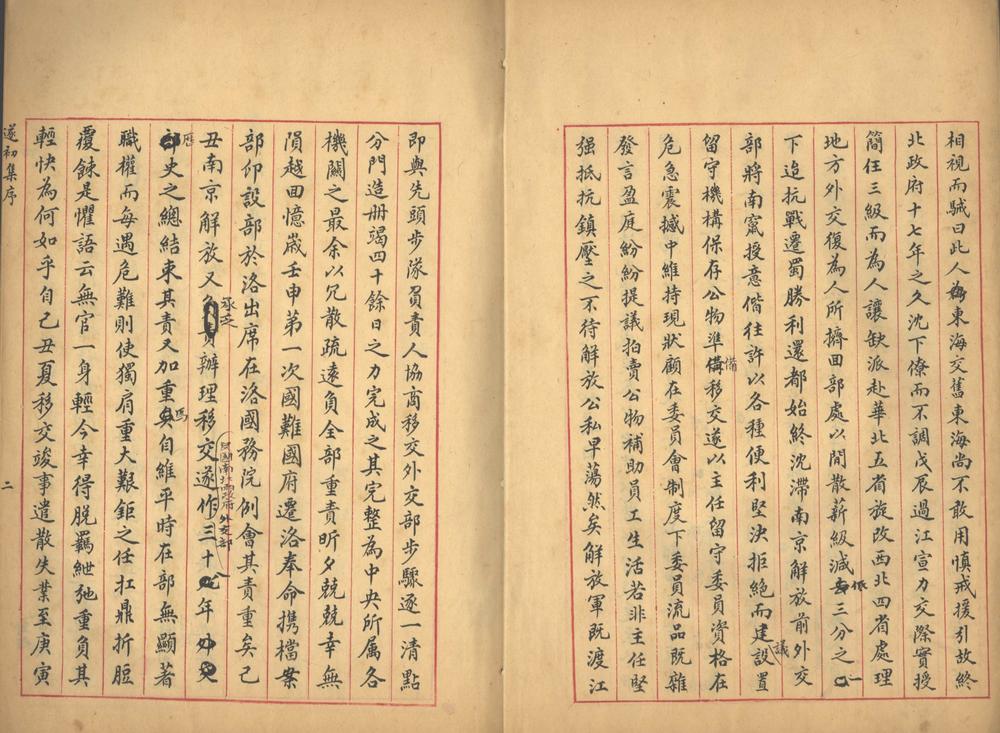 相視而誡曰此人為東海交舊東海尚不敢用慎戒援引故終
北政府十七年之久沈下僚而不調戊辰過江宣力交際實授
簡任三級而為人讓缺派赴華北五省旋改西北四省處理
地方外交復為人所擠回部處以閒散薪級減振三分之一
下迨抗戰遷蜀勝利還都始終沈滯南京解放前外交
部將南竄授意偕往許以各種便利堅決拒絕而建議設置
留守機構保存公物準備移交遂以主任留守委員資格在
危急震撼中維持現狀顧在委員會制度下委員流品既雜
發言盈庭紛紛提議拍賣公物補助員工生活若非主任堅
强抵抗鎮壓之不待解放公私早蕩然矣解放軍既渡江
即與先頭步隊負責人協商移交外交部步驟逐一清點
分門造册竭四十餘日之力完成之其完整為中央所屬各
機關之最余以冗散疏遠負全部重責昕夕兢兢幸無
隕越回憶歲壬申第一次國難國府遷洛奉命携檔案
部仰設部於洛出席在洛國務院例會其責重矣己
丑南京解放又承乏辦理移交遂作三十八年
民國南北兩政府外交部
歷史之總結束其責又加重焉自維平時在部無顯著
職權而每遇危難則使獨肩重大艱鉅之任扛鼎折脰
覆餗是懼語云無官一身輕今幸得脫羈紲弛重負其
輕快為何如乎自己丑夏移交竣事遣散失業至庚寅
遂初集序
二